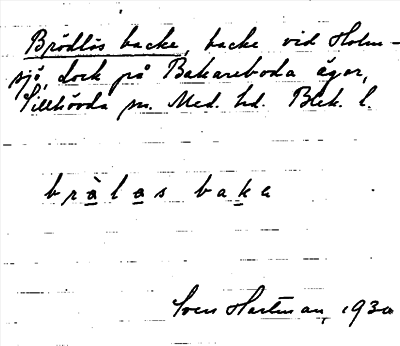 Brödlös backe, backe vid Holm-
sjö, dock på Bakareboda ägor,
Tillhövda sn. Med. hd. Blek. l.
bràlas baka
Sven Hartman, 1930